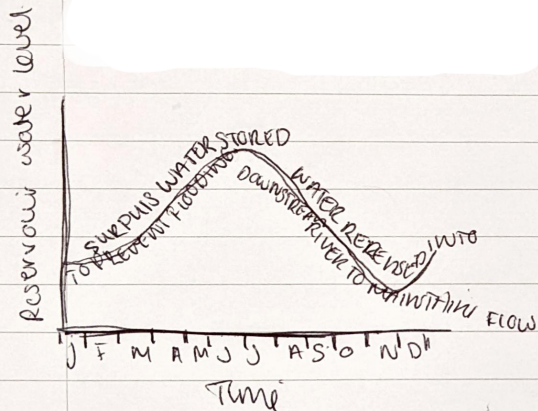 Reservoir water level
SURPLUS WATER STORED
TO PREVENT FLOODING
WATER RELEASED INTO
DOWNSTREAM RIVER TO MAINTAIN FLOW
J F M A M J J A S O N D
Time